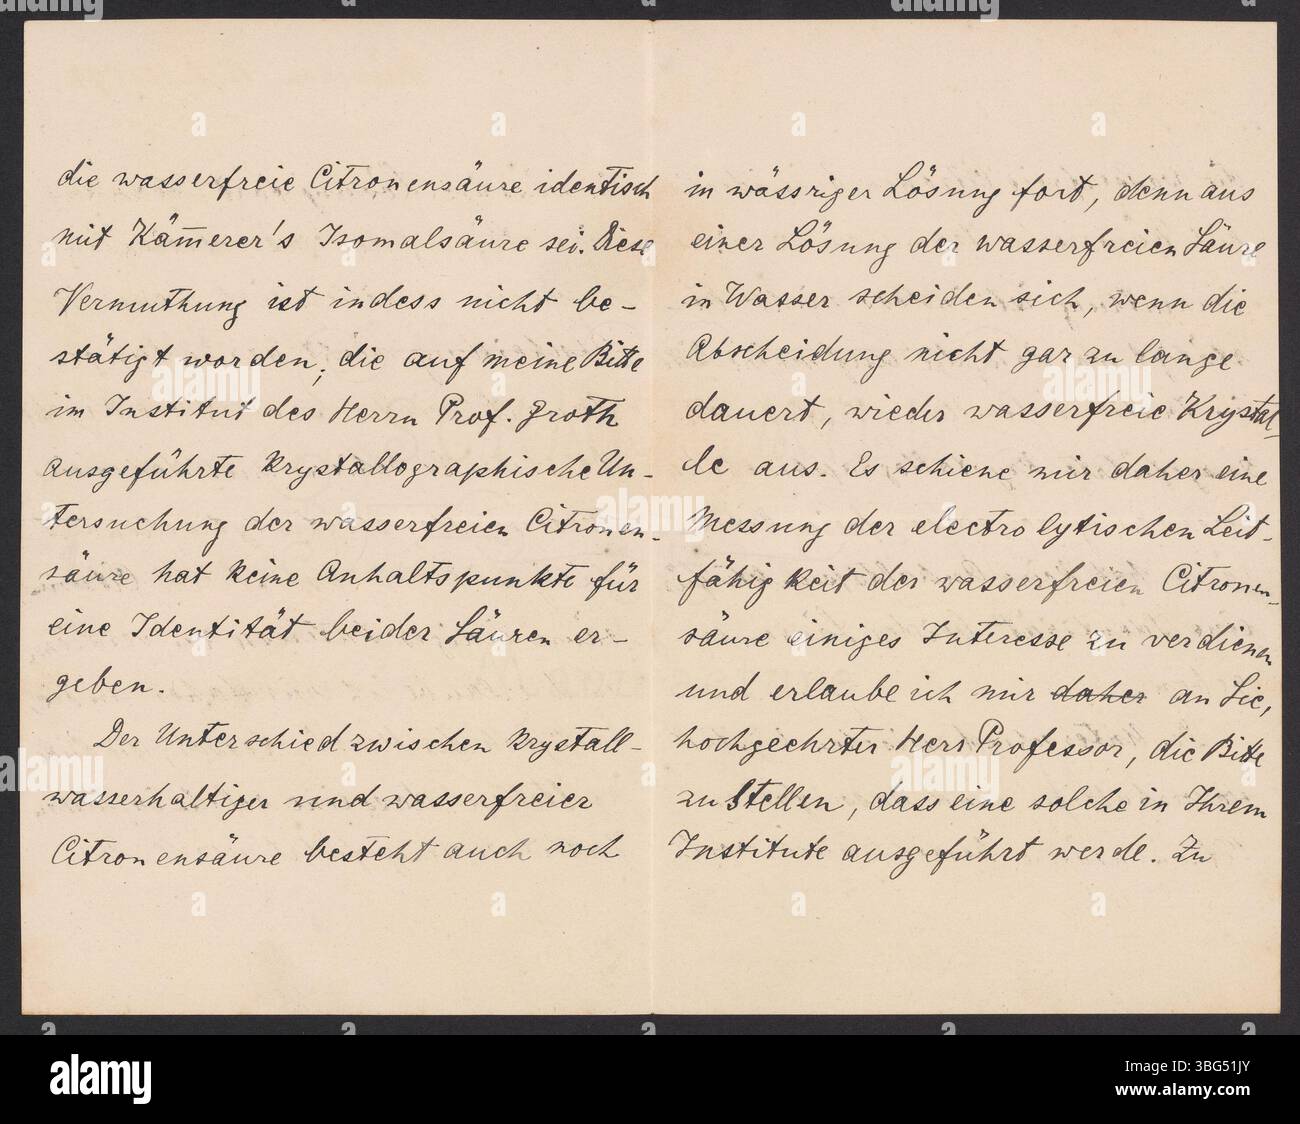 die wasserfreie Citronensäure identisch
mit Kam̅erer's Isomalsäure sei. Diese
Vermuthung ist indess nicht be-
stätigt worden; die auf meine Bitte
im Institut des Herrn Prof. Groth
ausgeführte krystallographische Un-
tersuchung der wasserfreien Citronen-
säure hat keine Anhaltspunkte für
eine Identität beider Säuren er-
geben.
Der Unterschied zwischen krystall-
wasserhaltiger und wasserfreier
Citronensäure besteht auch noch
in wässriger Lösung fort, denn aus
einer Lösung der wasserfreien Säure
in Wasser scheiden sich, wenn die
Abscheidung nicht gar zu lange
dauert, wieder wasserfreie Krystal-
le aus. Es schiene mir daher eine
Messung der electrolytischen Leit-
fähigkeit der wasserfreien Citronen-
säure einiges Interesse zu verdienen
und erlaube ich mir daher an Sie,
hochgeehrter Herr Professor, die Bitte
zu stellen, dass eine solche in Ihrem
Institute ausgeführt werde. Zu
alamy
Image ID: 3BG51JY
www.alamy.com